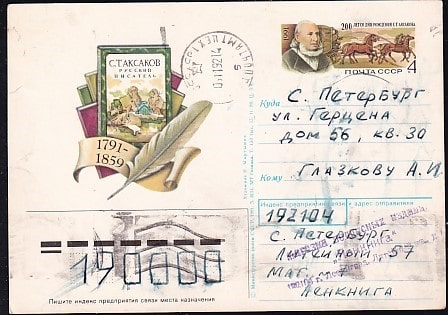 С.Т.АКСАКОВ
РУССКИЙ
ПИСАТЕЛЬ
1791-
1859
1991
200 ЛЕТ СО ДНЯ РОЖДЕНИЯ С.Т.АКСАКОВА
ПОЧТА СССР
4
Куда С. Петербург
ул. Герцена
дом 56, кв. 30
Кому Глазкову А.И
Индекс предприятия связи и адрес отправителя
192104
С. Петербург
Литейный 57
Маг. №7
Ленкнига
190000
Пишите индекс предприятия связи места назначения